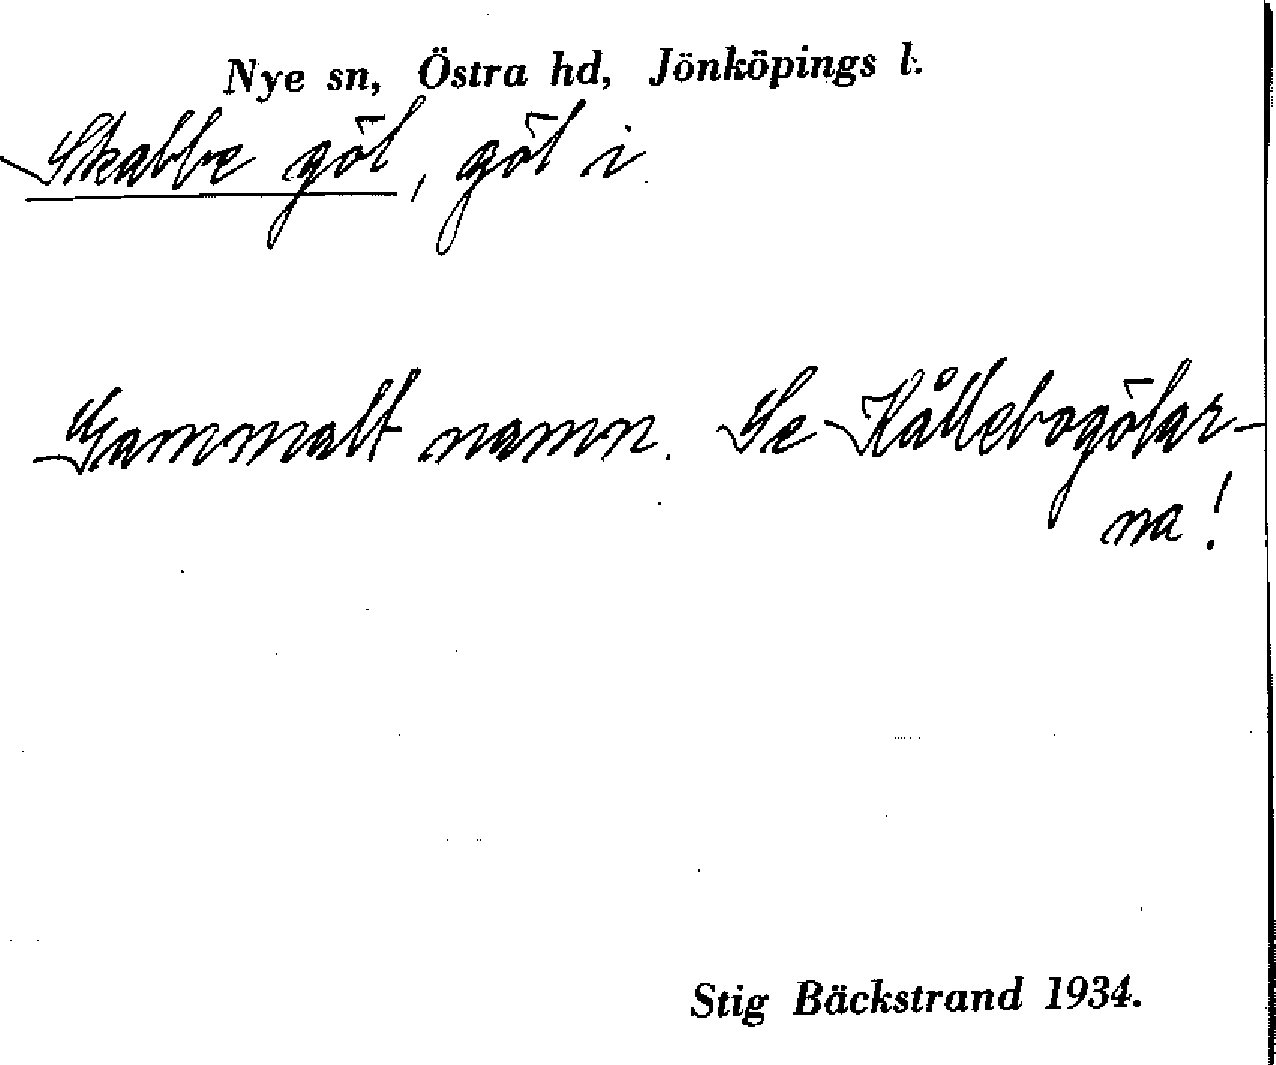 Nye sn, Östra hd, Jönköpings l.
Skabbe göl, göl i
Gammalt namn. Se Kållebogölar-
na!
Stig Bäckstrand 1934.